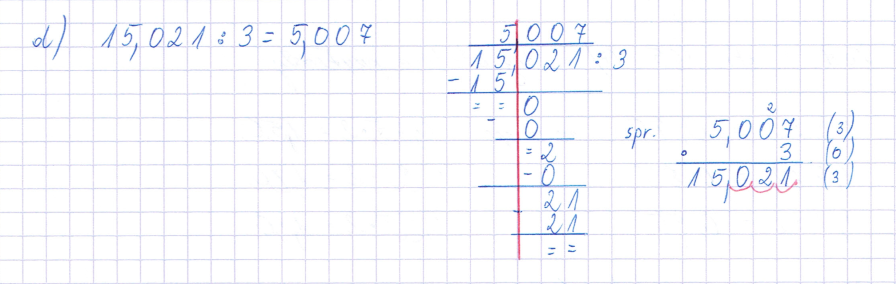 d) 15,021 : 3 = 5,007
5 007
15,021 : 3
- 15
= = 0
- 0
= 2
- 0
21
- 21
= =
spr.
2
5,007 (3)
· 3 (0)
15,021 (3)